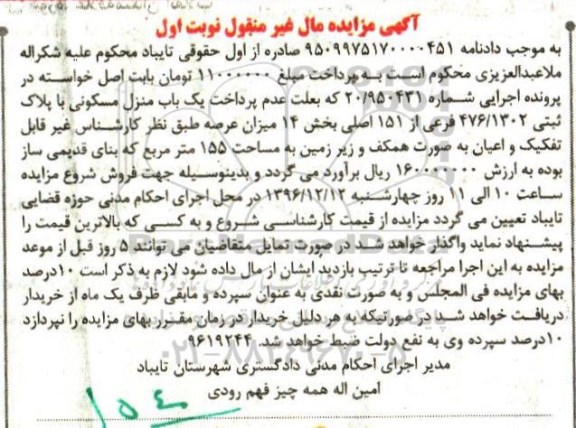 آگهی مزایده مال غیر منقول نوبت اول
به موجب دادنامه ۹۵۰۹۹۷۵۱۷۰۰۰۰۴۵۱ صادره از اول حقوقی تایباد محکوم علیه شکراله
ملاعبدالعزیزی محکوم است به پرداخت مبلغ ۱۱۰۰۰۰۰۰ تومان بابت اصل خواسته در
پرونده اجرایی شماره ۲۰/۹۵۰۴۳۱ که بعلت عدم پرداخت یک باب منزل مسکونی با پلاک
ثبتی ۴۷۶/۱۳۰۲ فرعی از ۱۵۱ اصلی بخش ۱۴ میزان عرصه طبق نظر کارشناس غیر قابل
تفکیک و اعیان به صورت همکف و زیر زمین به مساحت ۱۵۵ متر مربع که بنای قدیمی ساز
بوده به ارزش ۱۶۰۰۰۰۰۰۰ ریال برآورد می گردد و بدینوسیله جهت فروش شروع مزایده
ساعت ۱۰ الی ۱۱ روز چهارشنبه ۱۳۹۶/۱۲/۱۲ در محل اجرای احکام مدنی حوزه قضایی
تایباد تعیین می گردد مزایده از قیمت کارشناسی شروع و به کسی که بالاترین قیمت را
پیشنهاد نماید واگذار خواهد شد در صورت تمایل متقاضیان می توانند ۵ روز قبل از موعد
مزایده به این اجرا مراجعه تا ترتیب بازدید ایشان از مال داده شود لازم به ذکر است ۱۰درصد
بهای مزایده فی المجلس و به صورت نقدی به عنوان سپرده و مابقی ظرف یک ماه از خریدار
دریافت خواهد شد در صورتیکه به هر دلیل خریدار در زمان مقرر بهای مزایده را نپردازد
۱۰درصد سپرده وی به نفع دولت ضبط خواهد شد. ۹۶۱۹۲۴۴
مدیر اجرای احکام مدنی دادگستری شهرستان تایباد
امین اله همه چیز فهم رودی
۱۵۴
۰۲۱-۸۸۳۴۹۶۷۰-۵